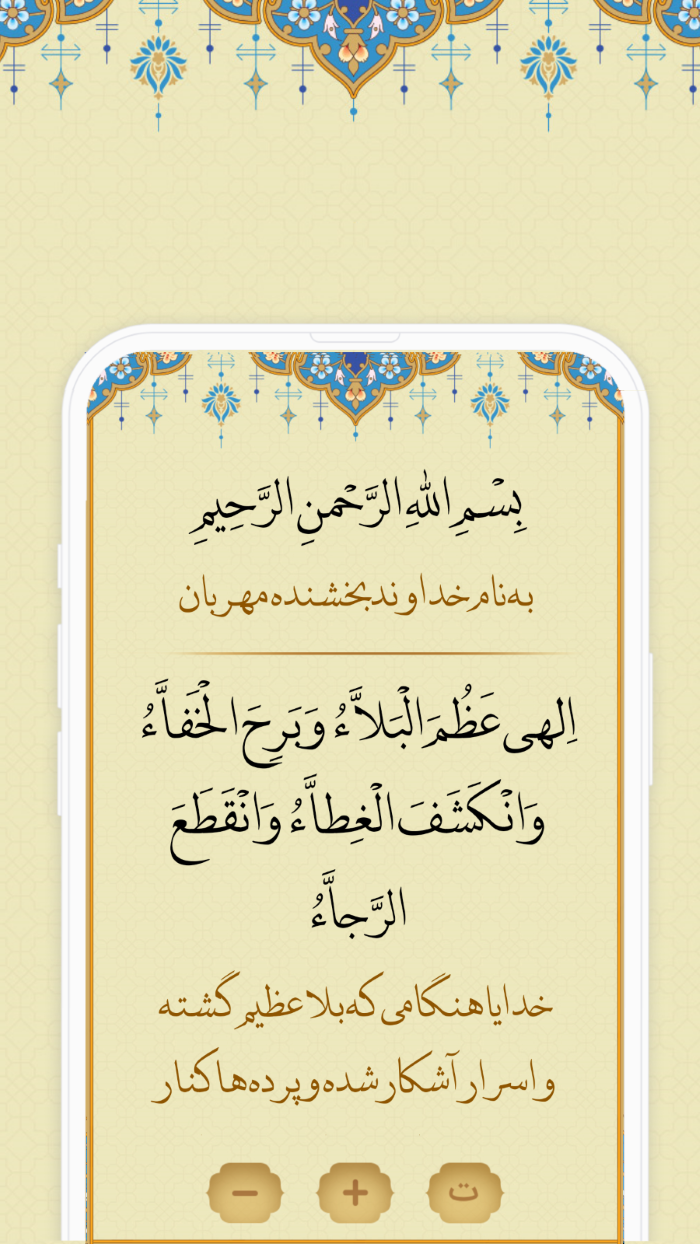 بِسْمِ اللهِ الرَّحْمنِ الرَّحِيمِ
به نام خداوند بخشنده مهربان
اِلهى عَظُمَ الْبَلاَّءُ وَبَرِحَ الْخَفاَّءُ
وَانْكَشَفَ الْغِطاَّءُ وَانْقَطَعَ
الرَّجاَّءُ
خدایا هنگامی که بلا عظیم گشته
و اسرار آشکار شده و پرده‌ها کنار
ت + −